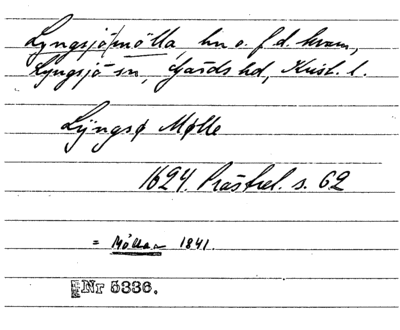 Lyngsjömölla, hn o. f.d. kvarn,
Lyngsjö sn, Gärds hd, Krist. l.
Lÿngsø Mølle
1624. Prästrel. s. 62
= Möllan 1841.
Nr 5336.